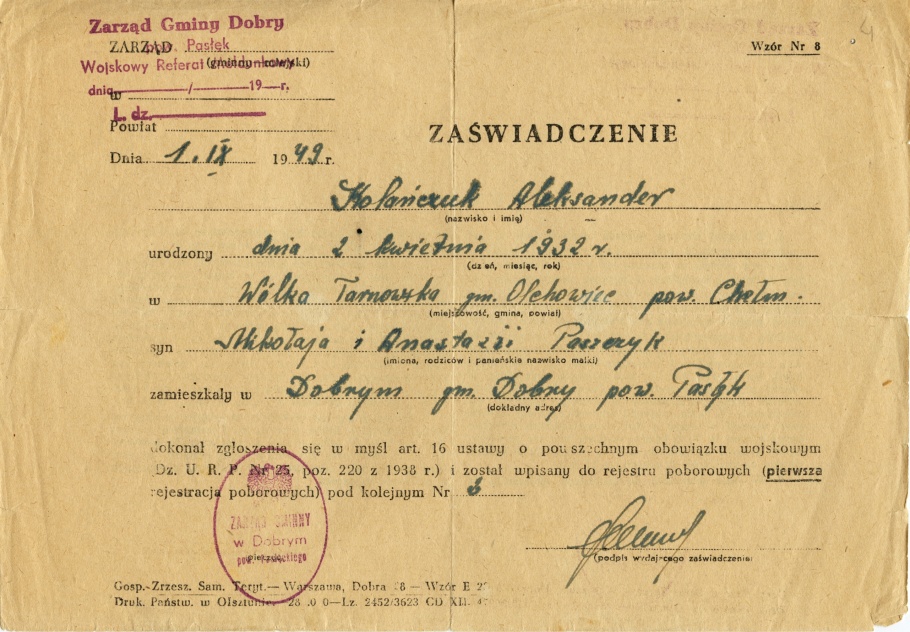 Zarząd Gminy Dobry
ZARZĄD pow. Pasłęk
Wojskowy Referat
(gminny miejski)
dnia / 19 r.
w
L. dz.
Powiat
Dnia 1. IX 1949 r.
Wzór Nr 8
4
ZAŚWIADCZENIE
Kolańczuk Aleksander
(nazwisko i imię)
urodzony dnia 2 kwietnia 1932 r.
(dzień, miesiąc, rok)
w Wólka Tarnowska gm. Olchowiec pow. Chełm.
(miejscowość, gmina, powiat)
syn Mikołaja i Anastazji Paszczyk
(imiona, rodziców i panieńskie nazwisko matki)
zamieszkały w Dobrym gm. Dobry pow. Pasłęk
(dokładny adres)
dokonał zgłoszenia się w myśl art. 16 ustawy o powszechnym obowiązku wojskowym
(Dz. U. R. P. Nr 25, poz. 220 z 1938 r.) i został wpisany do rejestru poborowych (pierwsza
rejestracja poborowych) pod kolejnym Nr 3
ZARZĄD GMINNY
w Dobrym
pow. Pasłęckiego
(podpis wydającego zaświadczenie)
Gosp.-Zrzesz. Sam. Teryt.— Warszawa, Dobra 28 — Wzór E
Druk. Państw. w Olsztynie, —Lz. 2452/3623 CD XII.